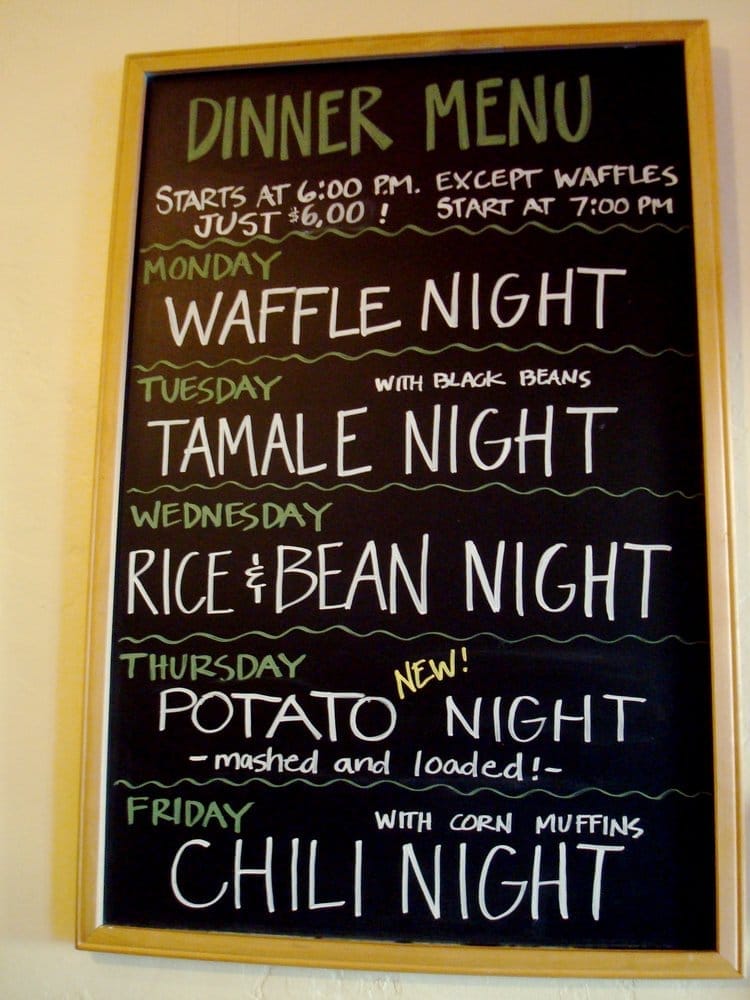 DINNER MENU
STARTS AT 6:00 P.M. EXCEPT WAFFLES
JUST $6,00 ! START AT 7:00 PM
MONDAY
WAFFLE NIGHT
TUESDAY WITH BLACK BEANS
TAMALE NIGHT
WEDNESDAY
RICE & BEAN NIGHT
THURSDAY NEW!
POTATO NIGHT
-mashed and loaded!-
FRIDAY WITH CORN MUFFINS
CHILI NIGHT